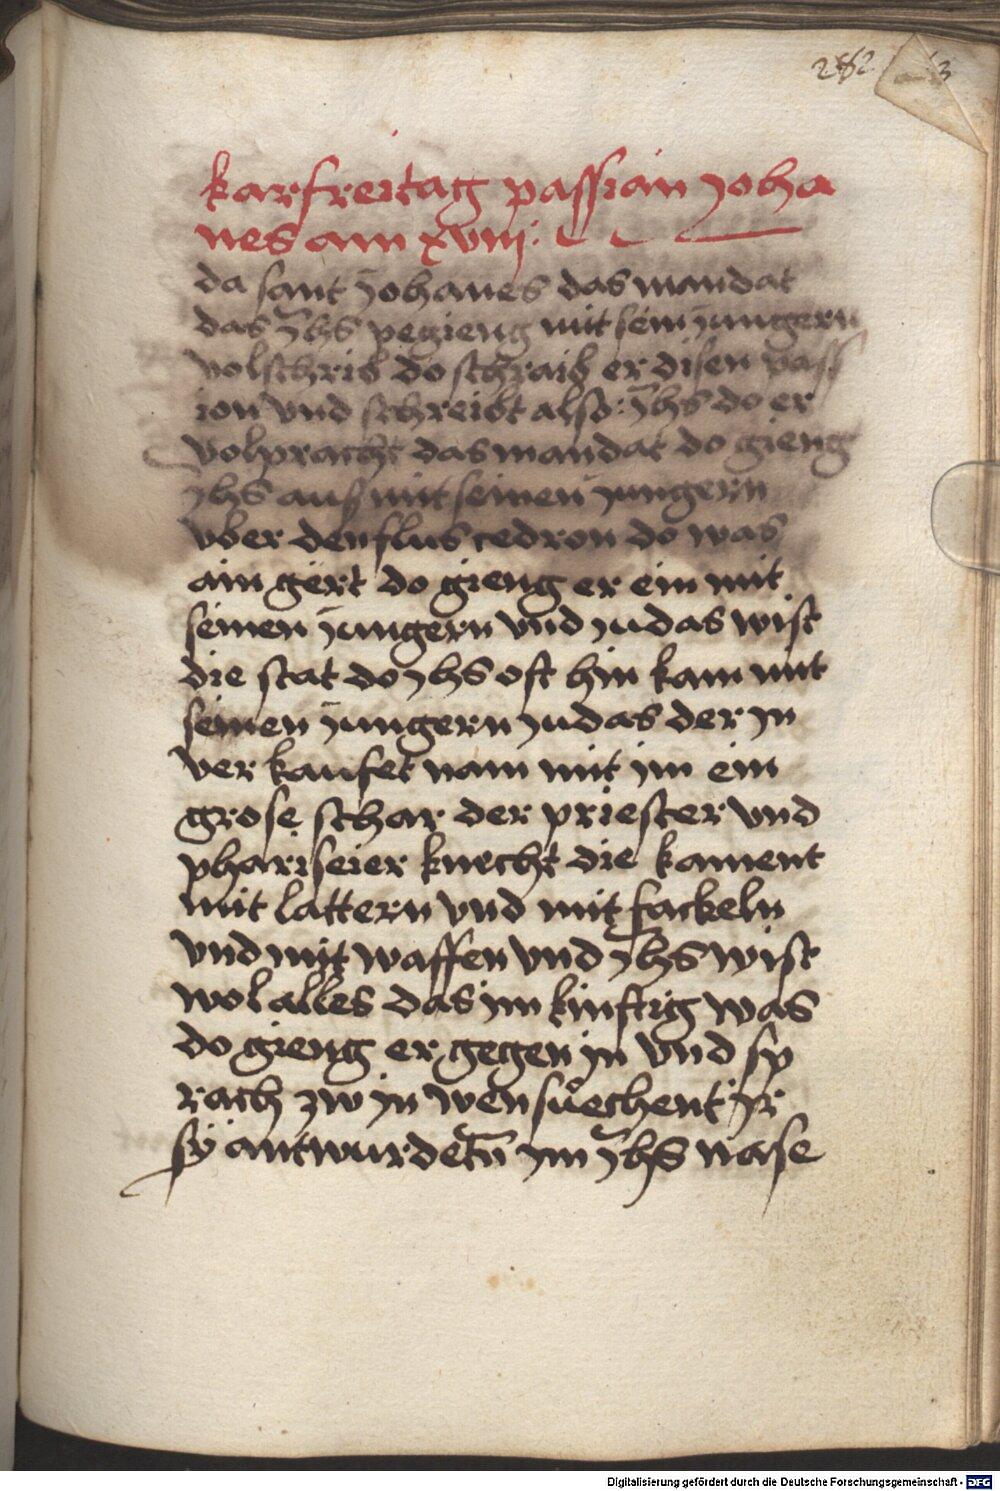 282
3
karfreitag passian Joha
nes am xviij:
da sant Johanes das mandat
das Jhs pegieng mit sein Jungern
volschrib do schraib er disen pass
ion vnd schreibt also: Jhs do er
volpracht das mandat do gieng
Jhs aus mit seinen Jungern
vber den flus cedron do was
ain gert do gieng er ein mit
seinen Jungern vnd Judas wist
die stat do Jhs oft hin kam mit
seinen Jungern Judas der Jn
ver kaufet nam mit im ein
grose schar der priester vnd
phariseier knecht die kament
mit lattern vnd mit fackeln
vnd mit waffen vnd Jhs wist
wol alles das im kinftig was
do gieng er gegen in vnd sp
rach zw in wen suͦechent ir
sÿ antwurdetn̄ im Jhs nase
Digitalisierung gefördert durch die Deutsche Forschungsgemeinschaft - DFG